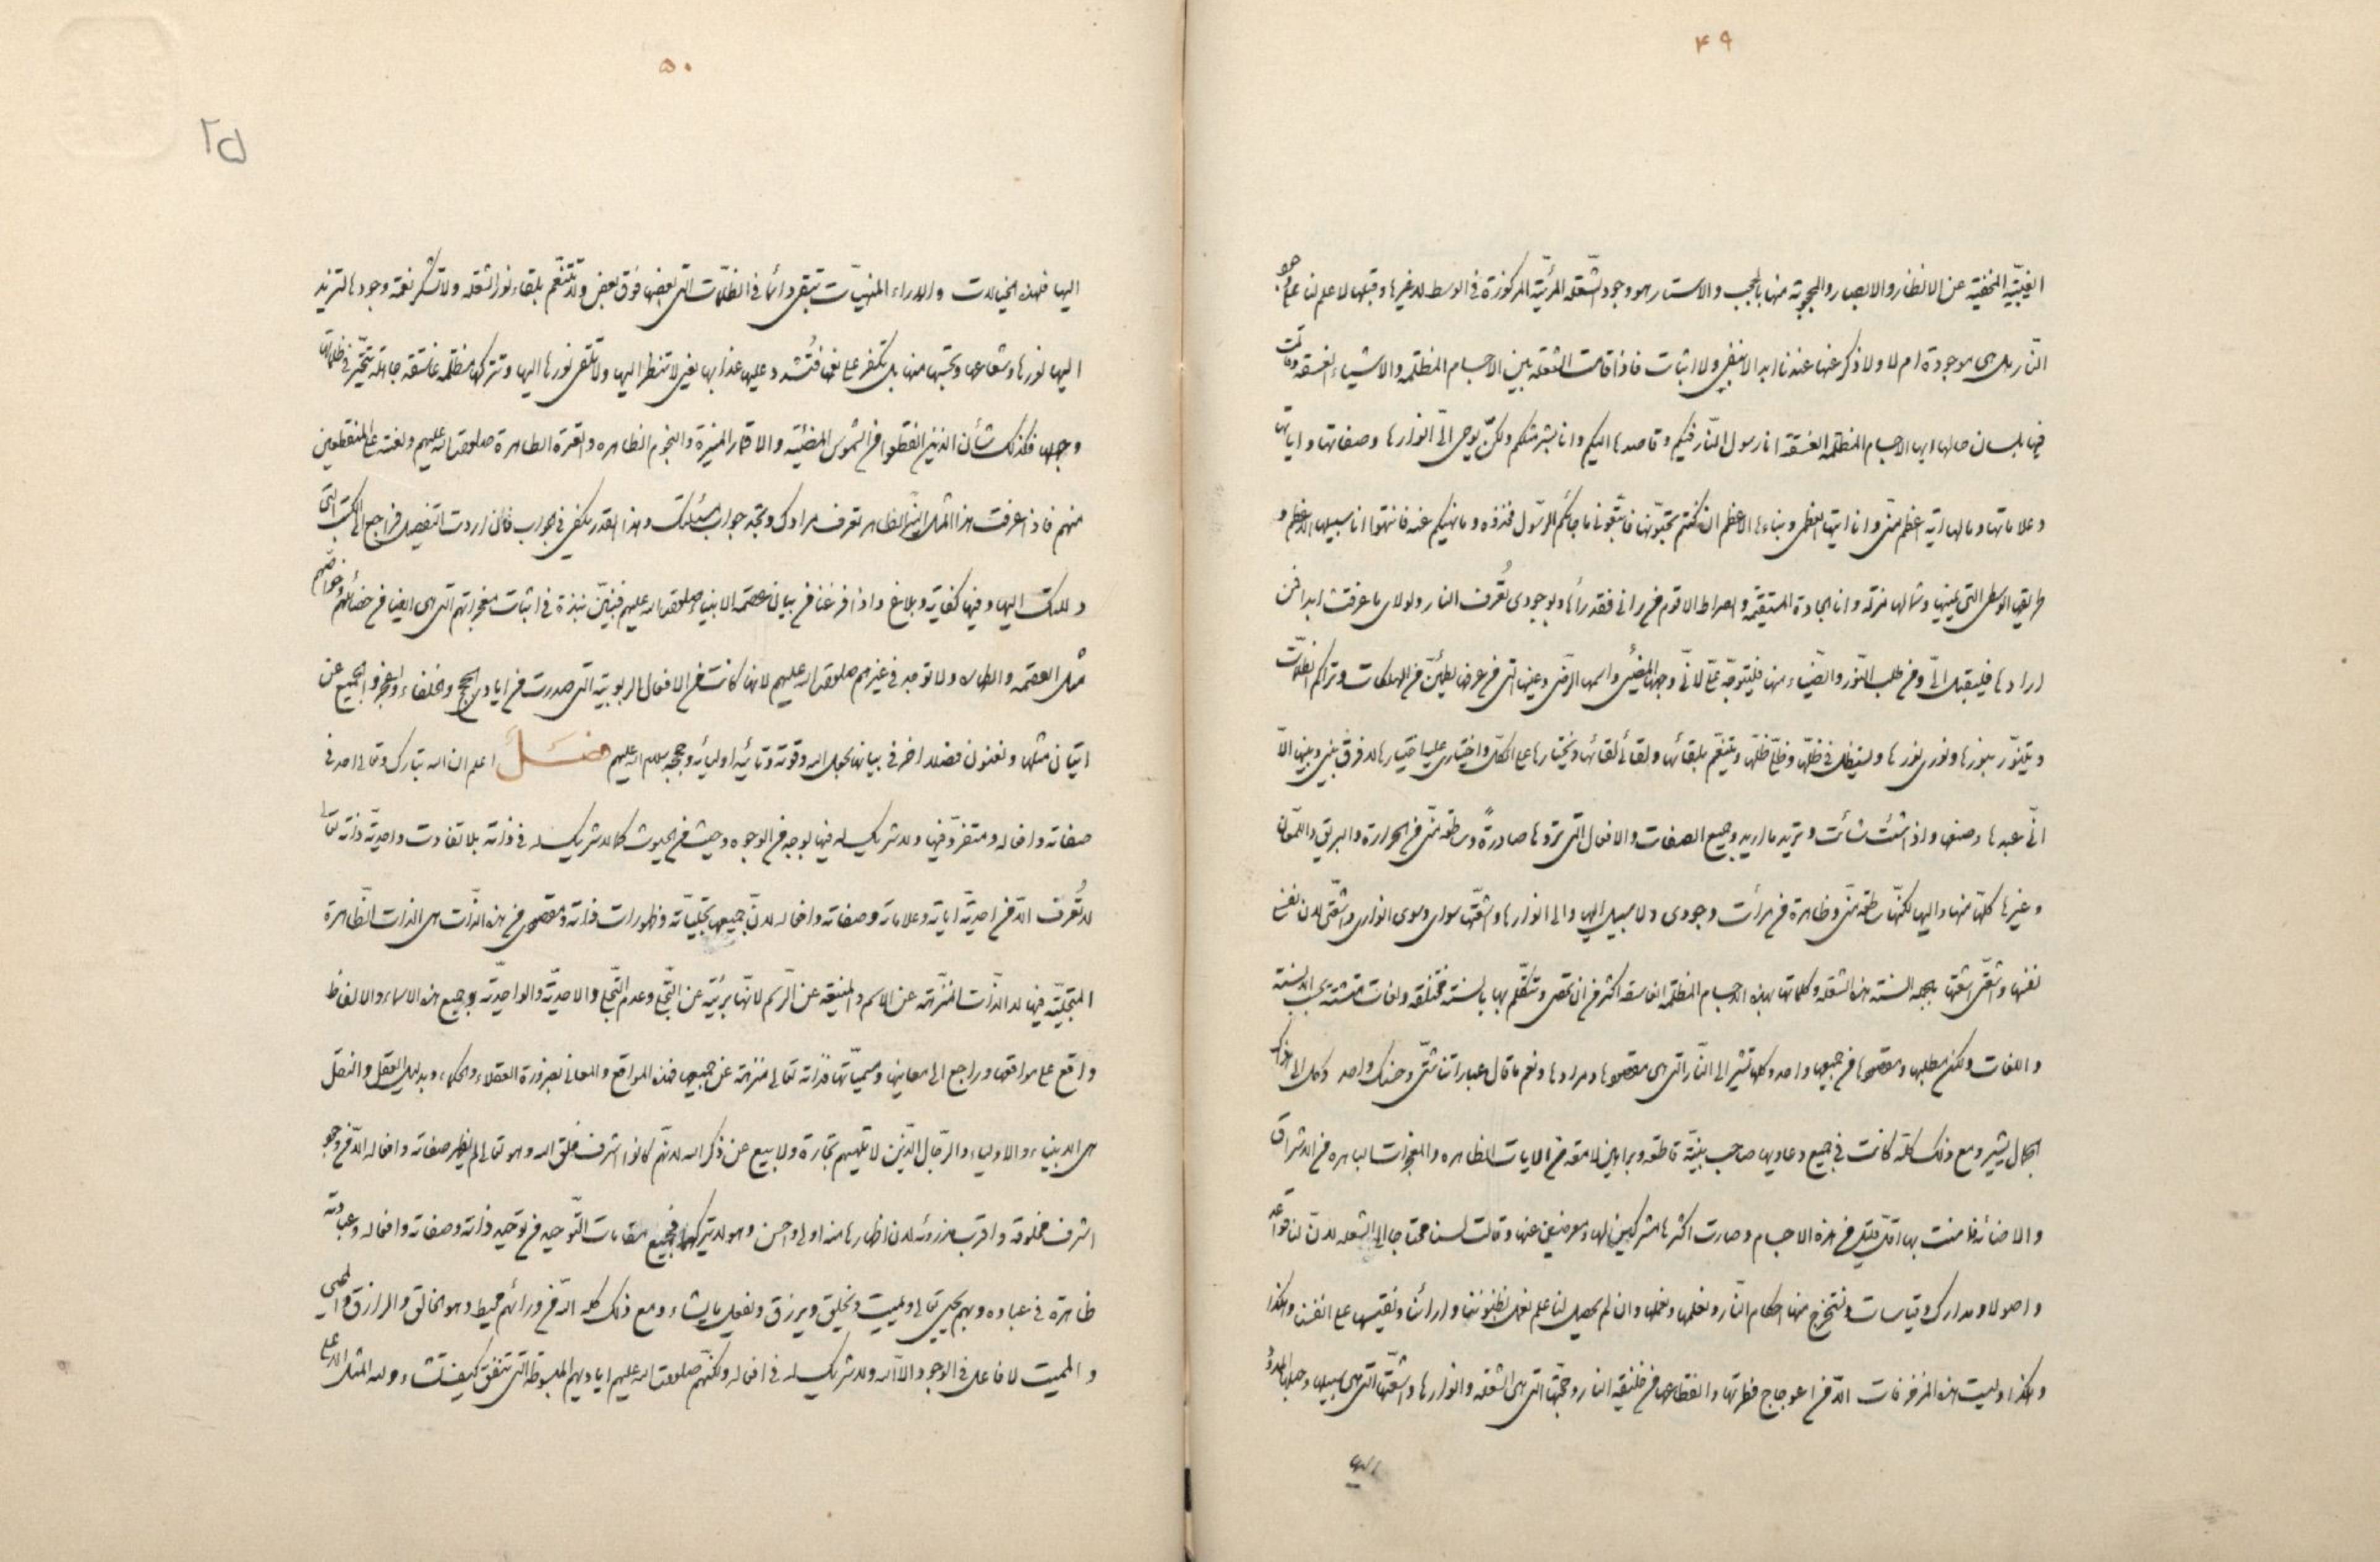 ۴۹
الغيبيّة المخفيّة عن الانظار والابصار والمحجوبة منها بالحجب والاستار هو وجود الشّعلة المرئيّة المركوزة فى الوسط لا غيرها وقبلها لا علم لنا بها هو
النّار هل هى موجودة ام لا ولا ذكر عنها عندنا ابدا لا بنفى ولا اثبات فاذا قامت الشعلة بين الاجسام المظلمة والاشياء الغسقة وقالت
فيها بلسان حالها ايها الاجسام المظلمة الغسقة انا رسول النّار فيكم وقاصدها اليكم وانا بشر مثلكم ولكن يوحى الىّ انوارها وصفاتها واياتها
وعلاماتها وما لها اية اعظم منّى وانا ايتها العظمى ونباءها الاعظم ان كنتم تحبّونها فاتّبعونى ما جائكم الرّسول فخذوه وما نهيكم عنه فانتهوا انا سبيلها الاعظم و
طريقها الوسطى التى يمينها وشمالها مزلّة وانا الجادة المستقيمة والصراط الاقوم من رانى فقد رأها وبوجودى تُعرف النار ولولاى ما عرفت ابدا فمن
ارادها فليقبل الىّ ومن طلب النّور والضّياء منها فليتوجّه عنّى لانّى وجهها المضيئ واسمها الرّضى وعينها التى من عرفها يطمئنّ من الهلكات وتراكم الظلمات
ويتنوّر بنورها ونورى نورها ويستظل فى ظلّها وظلّى ظلّها ويتنعّم بلقائها ولقائى لقائها ويختارها على الكلّ واختيارى عليها اختيارها لا فرق بينى وبينها الاّ
انّى عبدها وصنعها واذا شئت شائت وتريد ما اريد وجميع الصفات والافعال التى تروها صادرةً وساطعة منّى من الحرارة والبريق واللمعان
وغيرها كلّها منها واليها لكنّها ساطعة منّى وظاهرة من مرأت وجودى ولا سبيل اليها والى انوارها واشعّتها سواى وسوى انوارى واشعّتى لان نفسى
نفسها واشعّتى اشعّتها بجملة السنة هذه الشعلة وكلماتها بهذه الاجسام المظلمة الغاسقة اكثر من ان تحصى وتتكلّم بها بالسنة مختلفة ولغات متشتّة بحسب الالسنة
واللغات ولكن مطلبها ومقصودها من جميعها واحد وكلها تشير الى النّار التى هى مقصودها ومرادها ونعم ما قال عباراتنا شتّى وحسنك واحد وكل الى ذاك
الجمال يشير ومع ذلك كلّه كانت فى جميع دعاويها صاحب بيّنة قاطعة وبراهين لامعة من الايات الظاهرة والمعجزات الباهرة من الاشراق
والاضائة فامنت بها اقلّ قليل من هذه الاجسام وصارت اكثرها مشركين لها ومعرضين عنها وقالت لسنا محتاجا الى الشعلة لانّ لنا قواعد
واصولا ومدارك وقياسات ونستخرج منها احكام النّار ونعلمها ونعملها وان لم يحصل لنا علم نعمل بظنوننا وارائنا ونقيسها على انفسنا وهكذا
وهكذا وليست هذه المزخرفات الاّ من اعوجاج فطرتها وانقطاعها من خليفة النار وحجّتها التى هى الشعلة وانوارها واشعّتها التى هى سبيلها وحبلها
اليها
۵۰
۲۵
اليها فهذه الخيالات والاراء المنهيّات تبقى دائما فى الظلمات التى بعضها فوق بعض ولا تتنعّم بلقاء نور الشعلة ولا تشكر نعمة وجودها لتزيد
اليها نورها وشعاعها وتحبّها منها بل تكفر على نعمها فتُشدد عليها عذابها يعنى لا تنظر اليها ولا تلقى نورها اليها وتتركها مظلمة غاسقة جاهلة تتحيّر فى ظلماتها
وجهلها فكذلك شأن الذين انقطعوا من الشموس المضيئة والاقمار المنيرة والنجوم الظاهره والعترة الطاهرة صلوات الله عليهم ولعنته على المنقطعين
منهم فاذا عرفت هذا المثل البيّن الظاهر تعرف مرادك وتجد جواب مسئلتك وهذا القدر يكفى فى الجواب فان اردت التفصيل فراجع الى الكتب التى
دللتك اليها وفيها كفاية وبلاغ واذا فرغنا من بيان عصمة الانبياء صلوات الله عليهم فنبيّن نبذة فى اثبات معجزاتهم التى هى ايضا من خصائصهم وخواصّهم
مثل العصمة والطهارة ولا توجد فى غيرهم صلوات الله عليهم لانها كانت من الافعال الربوبية التى صدرت من ايادى الحجج والخلفاء والعجز والجميع عن
اتيان مثلها ونعنون فصلا اخر فى بيانه بحول الله وقوته وتائيد اوليائه وحججه سلام الله عليهم فصل اعلم ان الله تبارك وتعالى احد فى
صفاته وافعاله ومتفرد فيها ولا شريك له فيها بوجه من الوجوه وحيث من الحيوث كما لا شريك له فى ذاته بلا تفاوت واحدية ذاته تعالى
لا تُعرف الاّ من احديّة اياته وعلاماته وصفاته وافعاله لانّ جميعها تجلّياته وظهورات ذاته ومقصودى من هذه الذّات هى الذات الظّاهرة
المتجلّية فيها لا الذّات المنزّهة عن الاسم والمنيعة عن الرّسم لانّها بريئة عن التّجلّى وعدم التّجلّى والاحديّة والواحديّة وجميع هذه الاسماء والالفاظ
واقع على مواقعها وراجع الى معانيها ومسمّياتها فذاته تعالى منزهة عن جميعها فهذه المواقع والمعانى بضرورة العقلاء والحكماء وبدليل العقل والنقل
هى الانبياء والاولياء والرّجال الّذين لا تلهيهم تجارة ولا بيع عن ذكر الله لانّهم كانوا اشرف خلق الله وهو تعالى لم يظهر صفاته وافعاله الاّ من وجود
اشرف مخلوقه واقرب مذروئه لان اظهارها منه اولى واحسن وهو لا يترك الاولى فجميع مقامات التّوحيد من توحيد ذاته وصفاته وافعاله وعبادته
ظاهرة فى عباده وبهم يحيى تعالى ويميت ويخلق ويرزق ويفعل ما يشاء ومع ذلك كله الله من ورائهم محيط وهو الخالق والرازق والمحيى
والمميت لا فاعل فى الوجود الا الله ولا شريك له فى افعاله ولكنّهم صلوات الله عليهم اياديهم المبسوطة التى تنفق كيف تشاء ولله المثل الاعلى